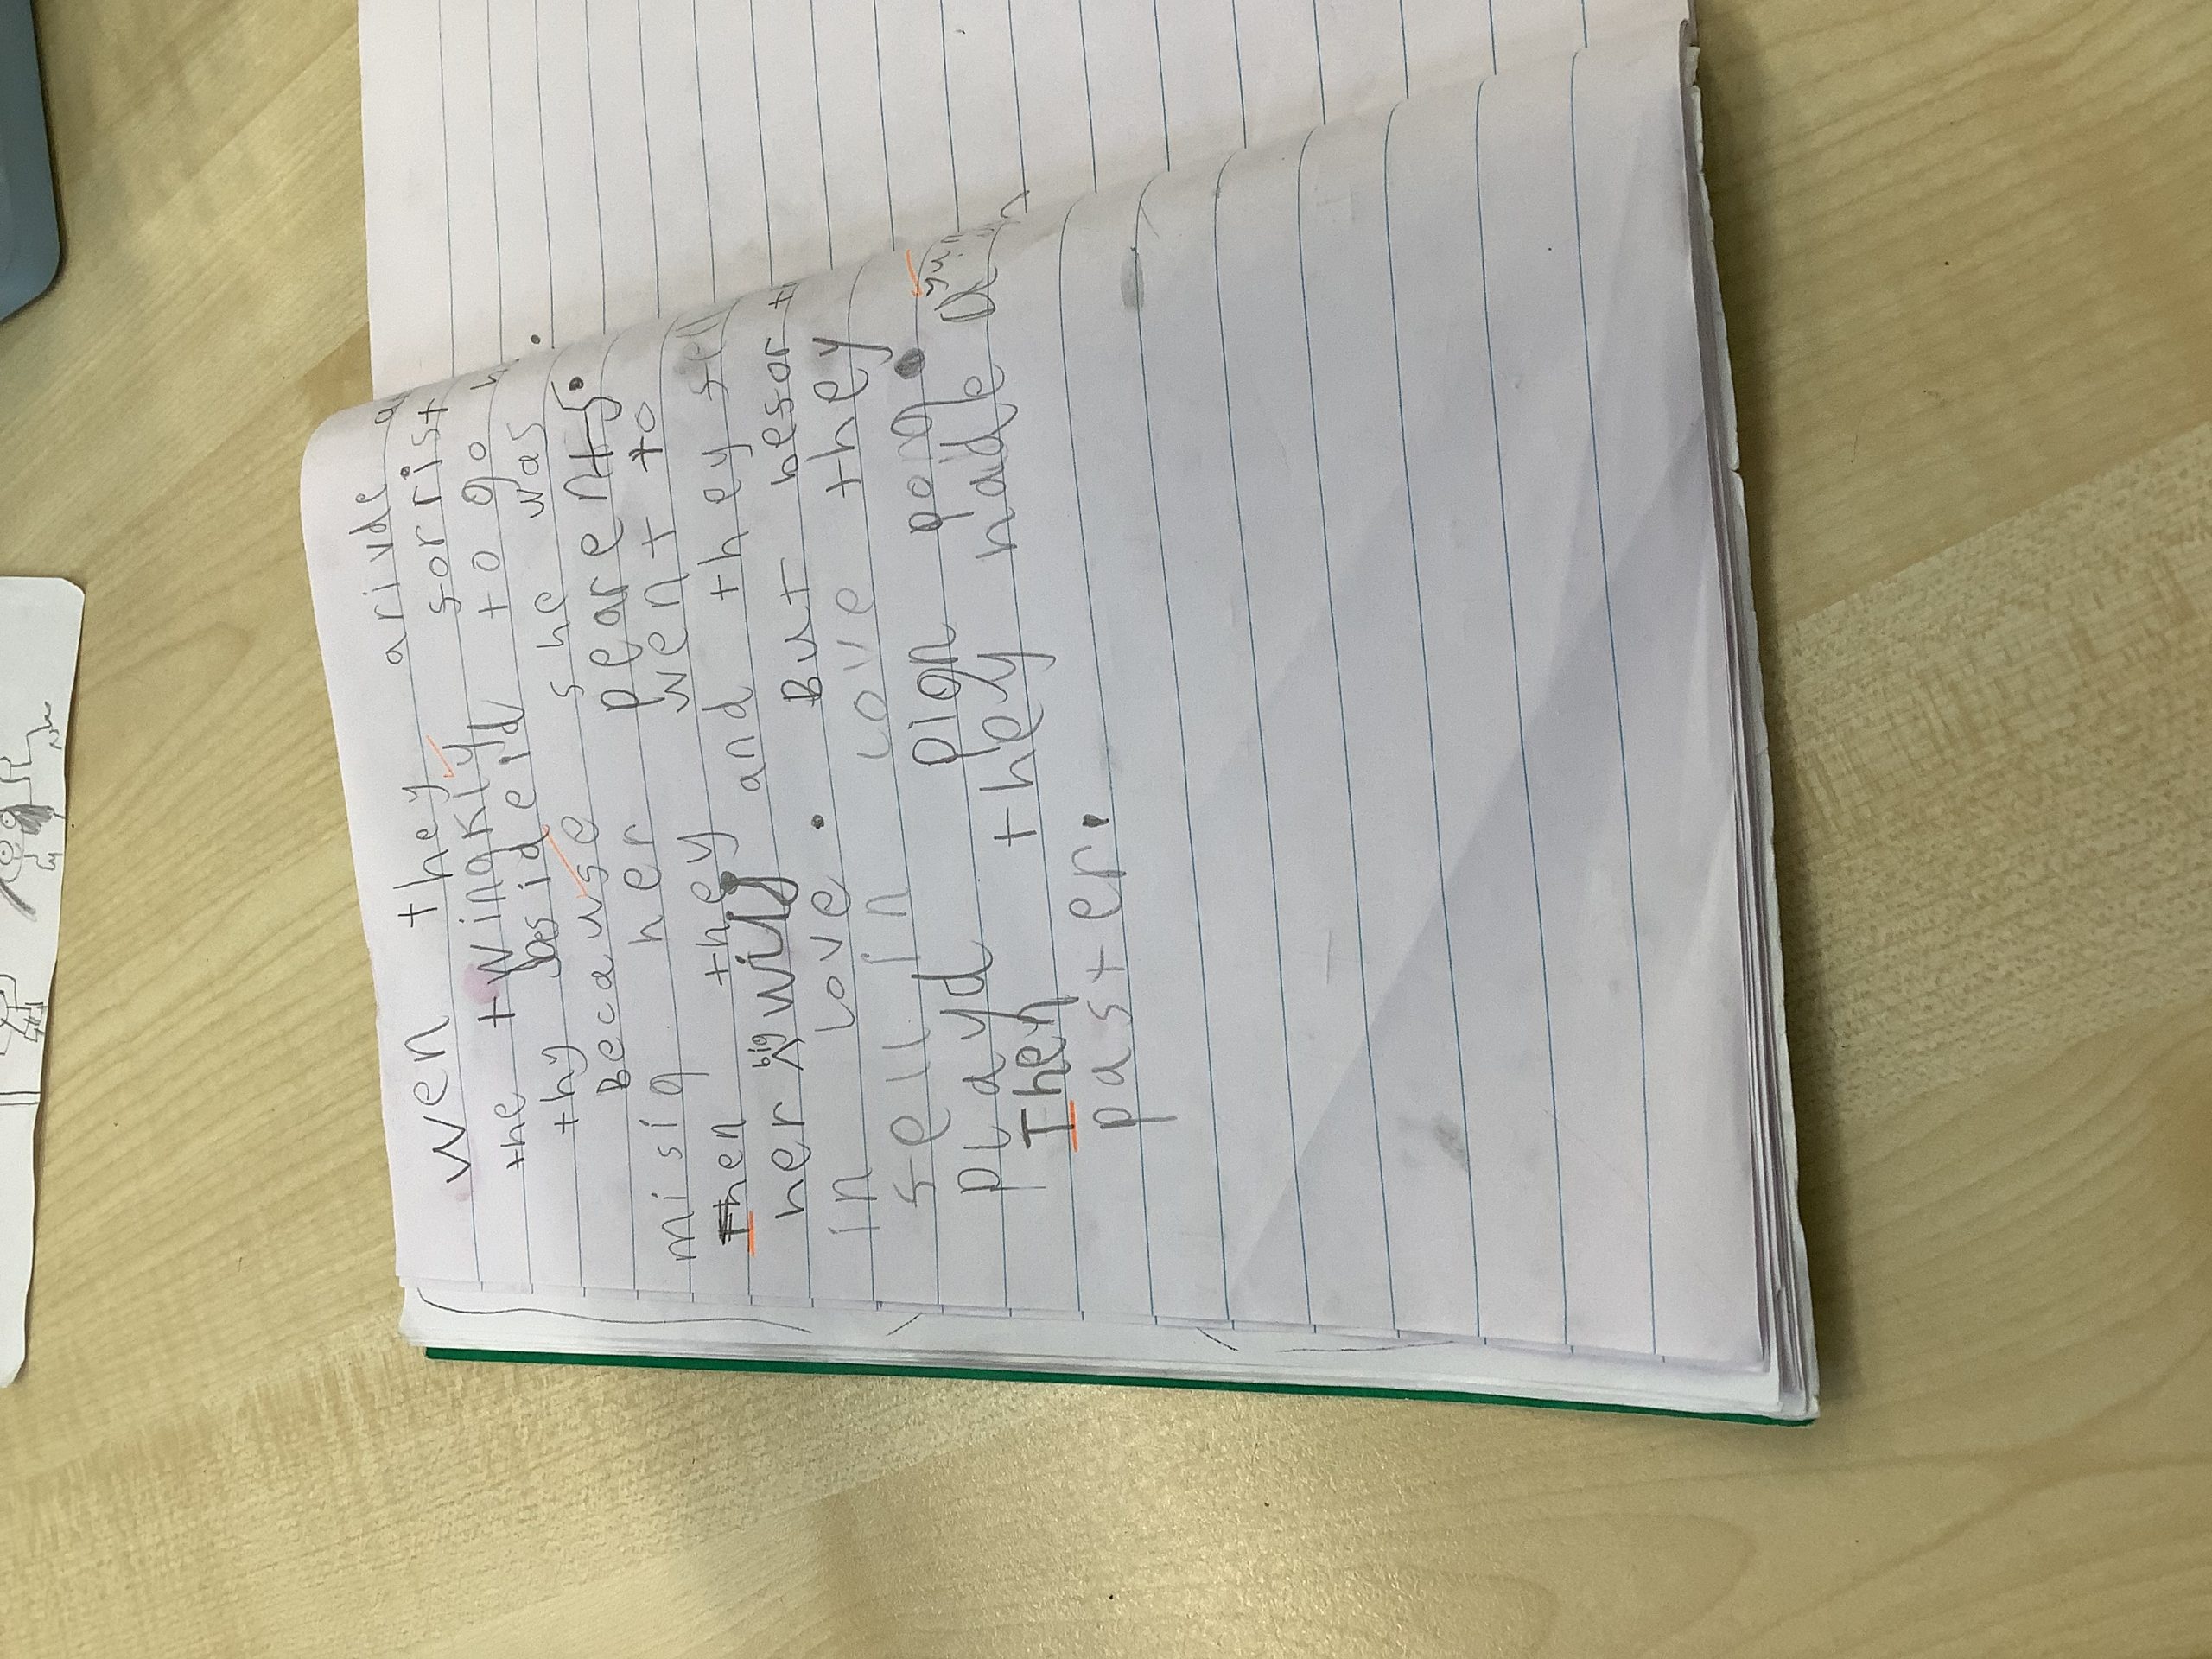 wen they arivde a
the twingkily sorrist
thy besideid to go
Because she was
misig her pearents.
Then they went to
her big and they sell
in Love. But
sell in Love they
playd pign pong.
Then they made a yumy
paster.